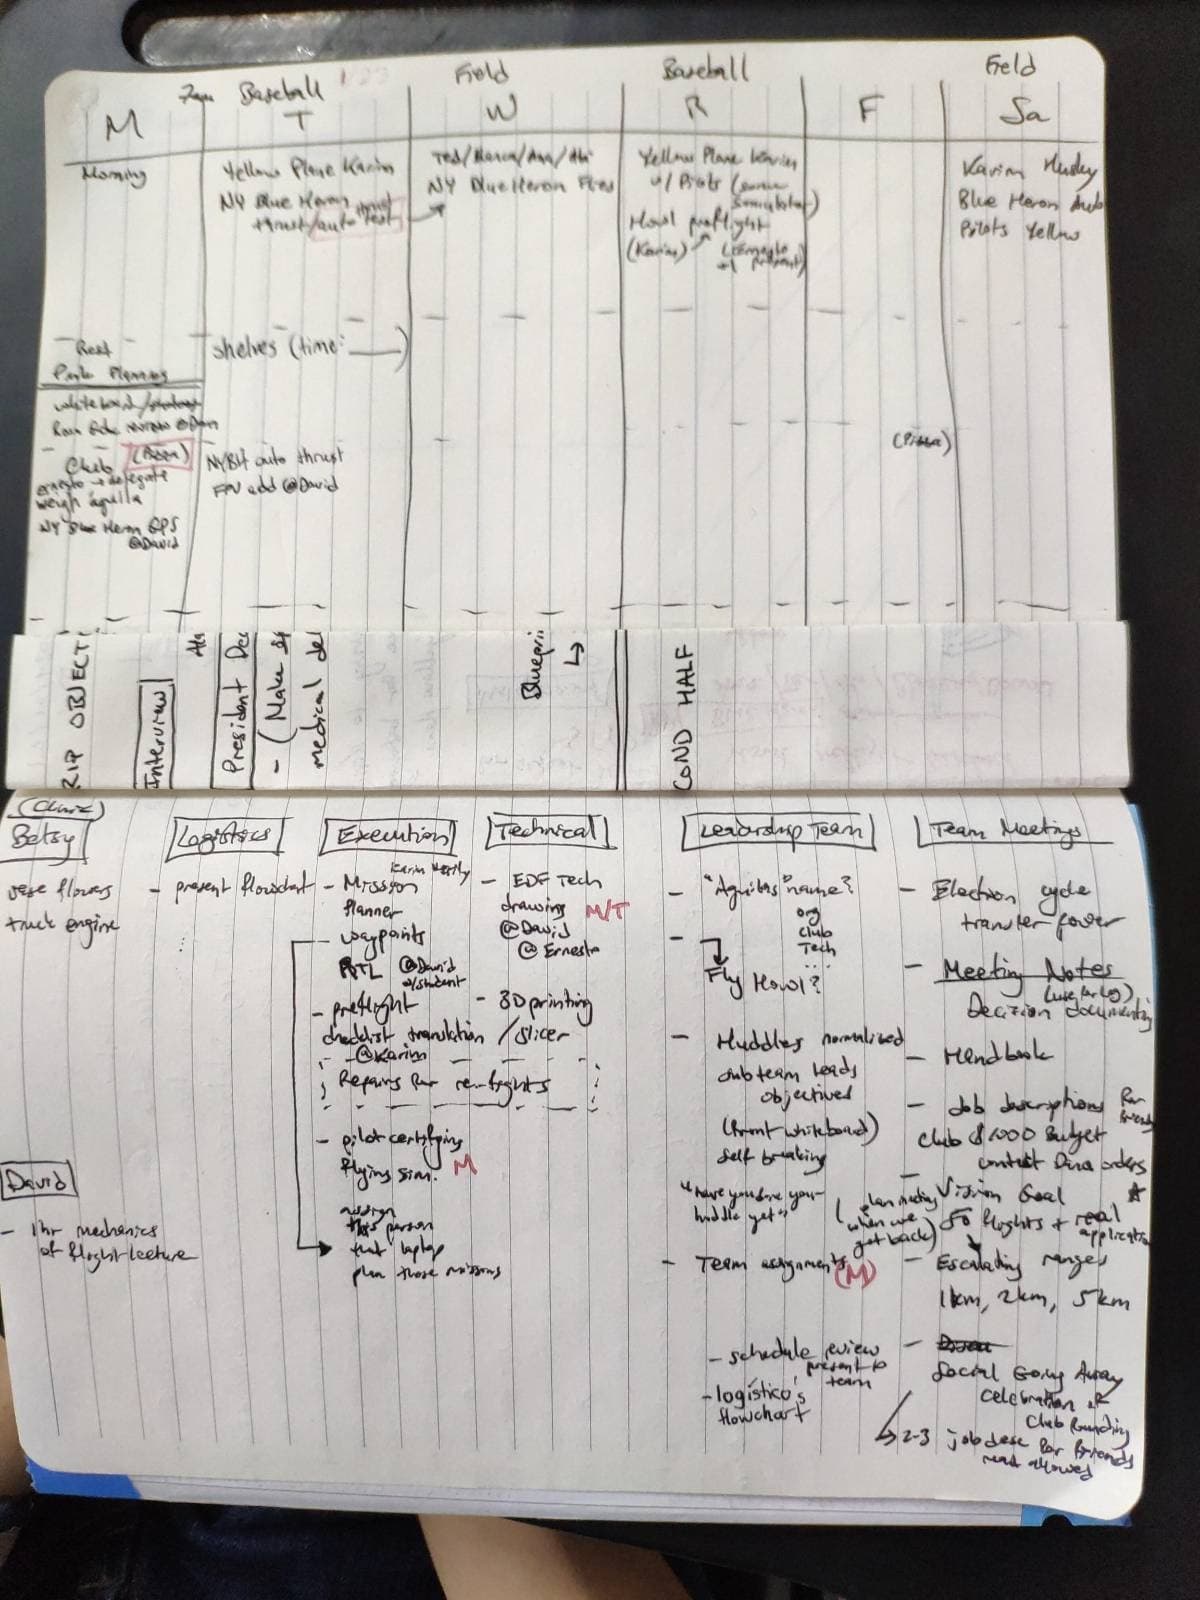 7am Baseball
Field
Baseball
Field
M
T
W
R
F
Sa
Morning
Yellow Plane Karim
NY Blue Heron
thrust/auto test
thrust
Ted/Blanca/Ana/Abi
NY Blue Heron Flies
Yellow Plane Karim
w/ Pilots
Howl preflight
(Karim)
(Ernesto
present)
Karim Husky
Blue Heron
Pilots Yellow
Rest
Planning
whiteboard/
@Dan
Club (Pizza)
Ernesto → delegate
weigh aguila
NY Blue Heron GPS
@David
shelves (time: ____)
NYBH auto thrust
FPV add @David
(Pizza)
RIP OBJECTI
Interview
President Dec
- (Make
medical del
Blueprin
↳
COND HALF
(Clinic)
Betsy
vase flowers
truck engine
David
- 1 hr mechanics
of flight lecture
Logistics
- present flowchart
Execution
- Mission
Karim
planner
waypoints
RTL @David
w/student
- preflight
checklist translation
- @Karim
Repairs for re-flights
- pilot certifying
flying sim. M
assign
this person
that laptop
plan those missions
Technical
- EDF Tech
drawing M/T
@David
@Ernesto
- 3D printing
/slicer
Leadership Team
- "Aguilas" name?
org
club
Tech
...
- Fly Howl?
- Huddles normalized
sub team leads
objectives
(front whiteboard)
self breaking
"have you done your
huddle yet"
(plan meeting
when we
get back)
- Team assignments (M)
- schedule review
present to
team
- logístico's
flowchart
Team Meetings
- Election cycle
transfer power
- Meeting Notes
(use for log)
Decision documenting
- Handbook
- Job descriptions for
friends
Club $1000 Budget
contest Dina orders
- Vision Goal
50 flights + real
application
- Escalating ranges
1km, 2km, 5km
- Social Going Away
Celebration of
Club Founding
↳ 2-3 job desc for friends
most allowed